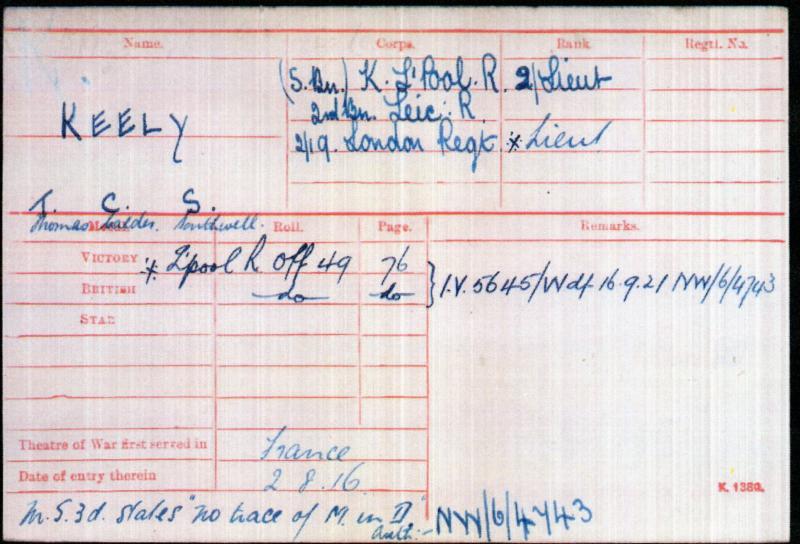 Name. Corps. Rank. Regtl. No.
(5. Bn.) K. L'Pool. R. 2/Lieut
KEELY 2nd Bn. Leic. R.
2/19. London Regt * Lieut
T. C. S.
Thomas Calder Southwell.
Medal. Roll. Page. Remarks.
VICTORY * L'pool R Off 49 76
BRITISH do do } I.V. 5645/W df 16.9.21 NW/6/4743
STAR
Theatre of War first served in France
Date of entry therein 2.8.16.
K. 1380.
M.S.3d. states "no trace of M. in D"
Auth:- NW/6/4743